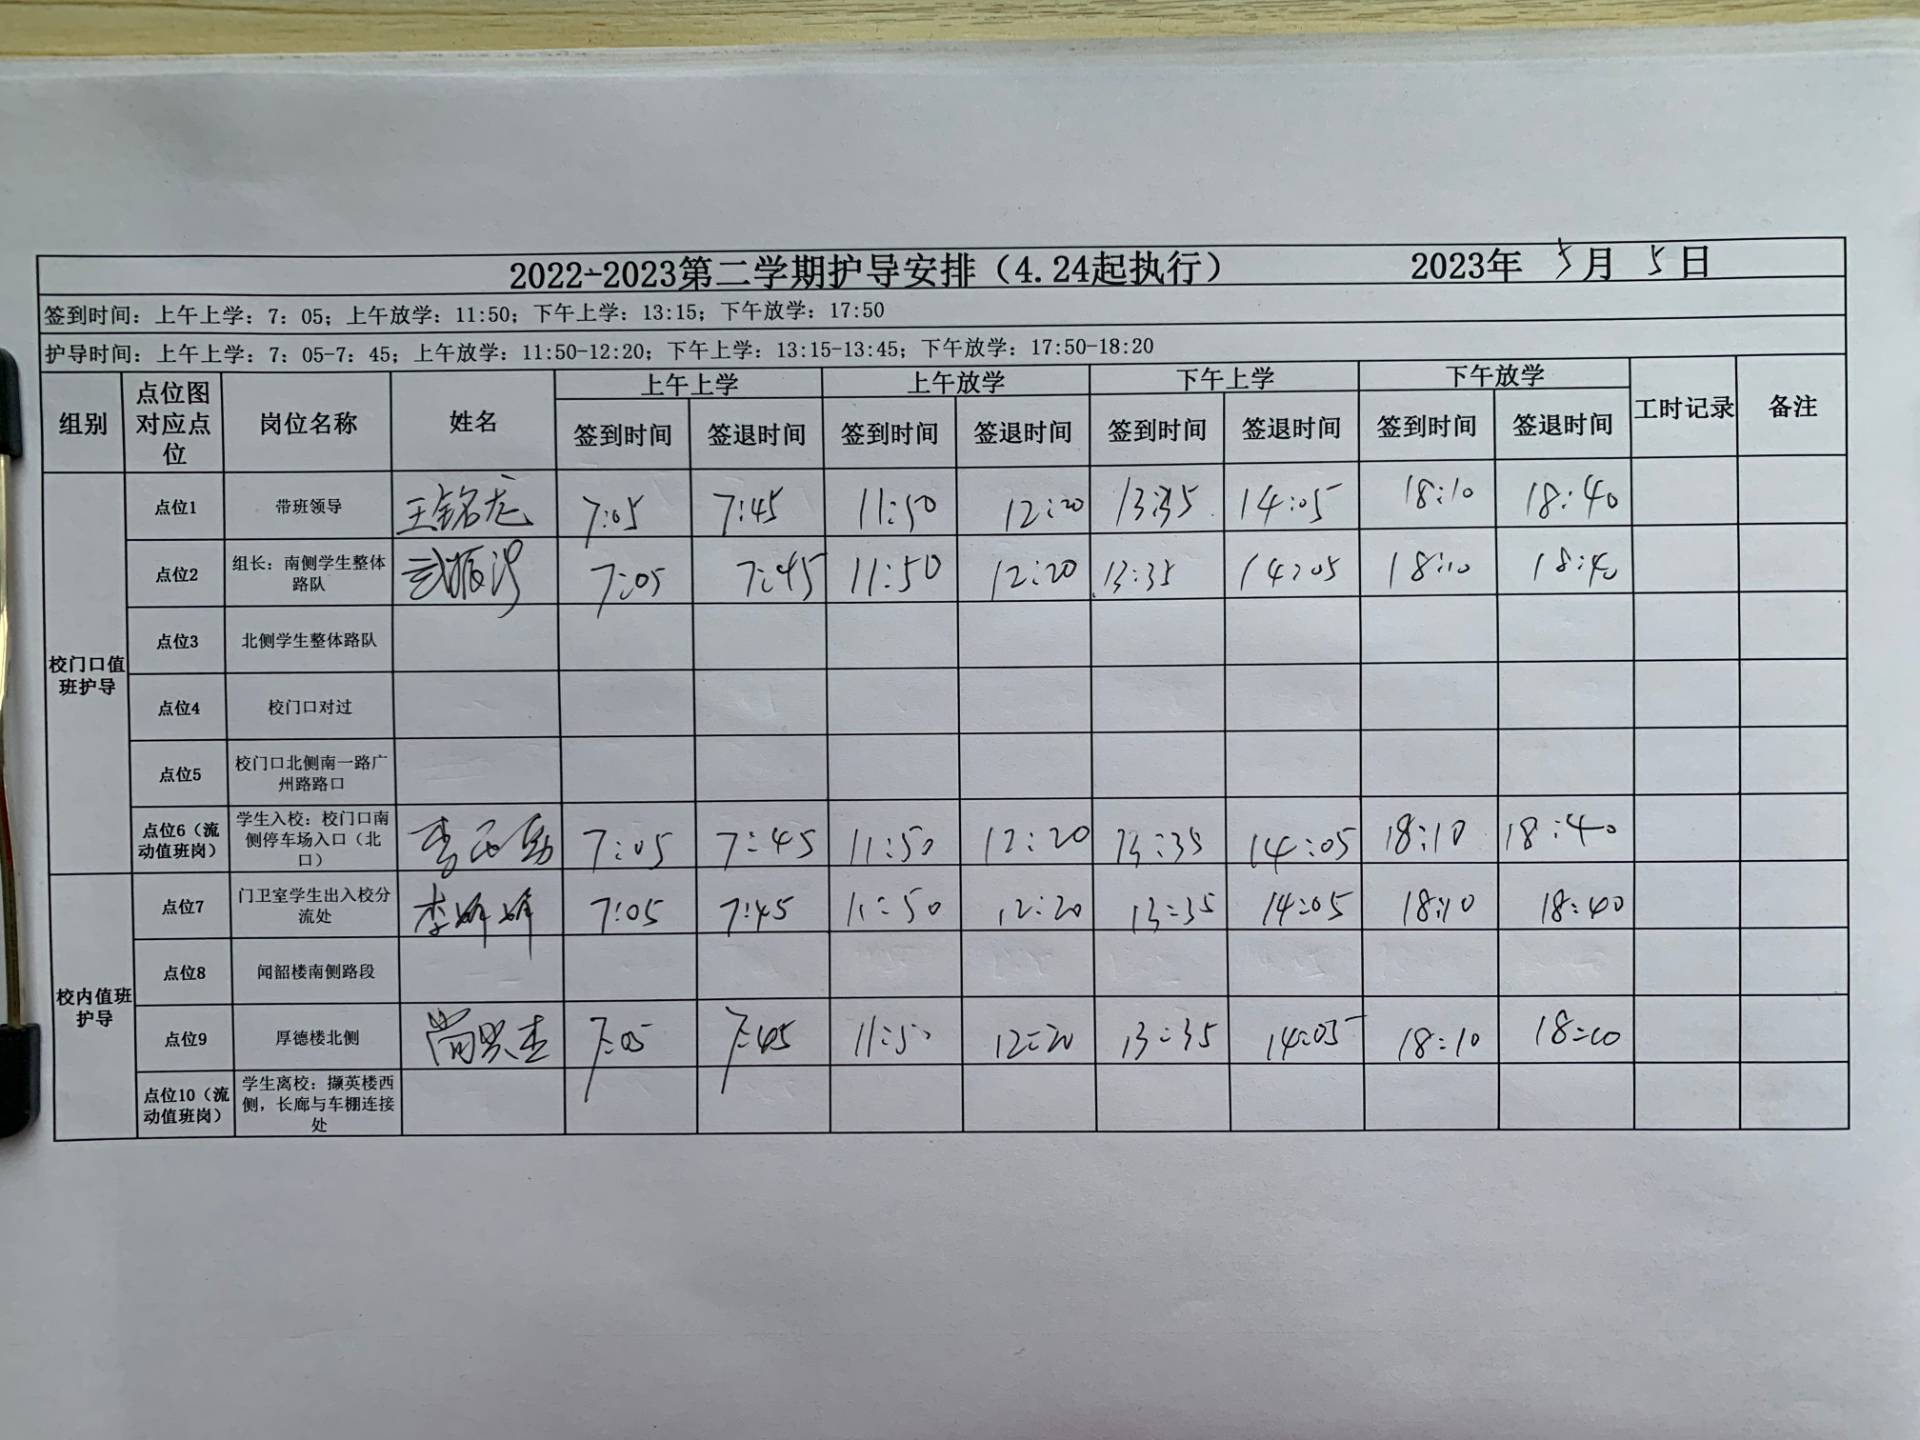 2022-2023第二学期护导安排（4.24起执行） 2023年 5月 5日
签到时间：上午上学：7：05；上午放学：11:50；下午上学：13:15；下午放学：17:50
护导时间：上午上学：7：05-7：45；上午放学：11:50-12:20；下午上学：13:15-13:45；下午放学：17:50-18:20
组别 点位图对应点位 岗位名称 姓名 上午上学 上午放学 下午上学 下午放学 工时记录 备注
签到时间 签退时间 签到时间 签退时间 签到时间 签退时间 签到时间 签退时间
校门口值班护导
点位1 带班领导 王铭龙 7:05 7:45 11:50 12:20 13:35 14:05 18:10 18:40
点位2 组长：南侧学生整体路队 7:05 7:45 11:50 12:20 13:35 14:05 18:10 18:40
点位3 北侧学生整体路队
点位4 校门口对过
点位5 校门口北侧南一路广州路路口
点位6（流动值班岗） 学生入校：校门口南侧停车场入口（北口） 7:05 7:45 11:50 12:20 13:35 14:05 18:10 18:40
校内值班护导
点位7 门卫室学生出入校分流处 李婷婷 7:05 7:45 11:50 12:20 13:35 14:05 18:10 18:40
点位8 闻韶楼南侧路段
点位9 厚德楼北侧 7:05 7:45 11:50 12:20 13:35 14:05 18:10
点位10（流动值班岗） 学生离校：撷英楼西侧，长廊与车棚连接处